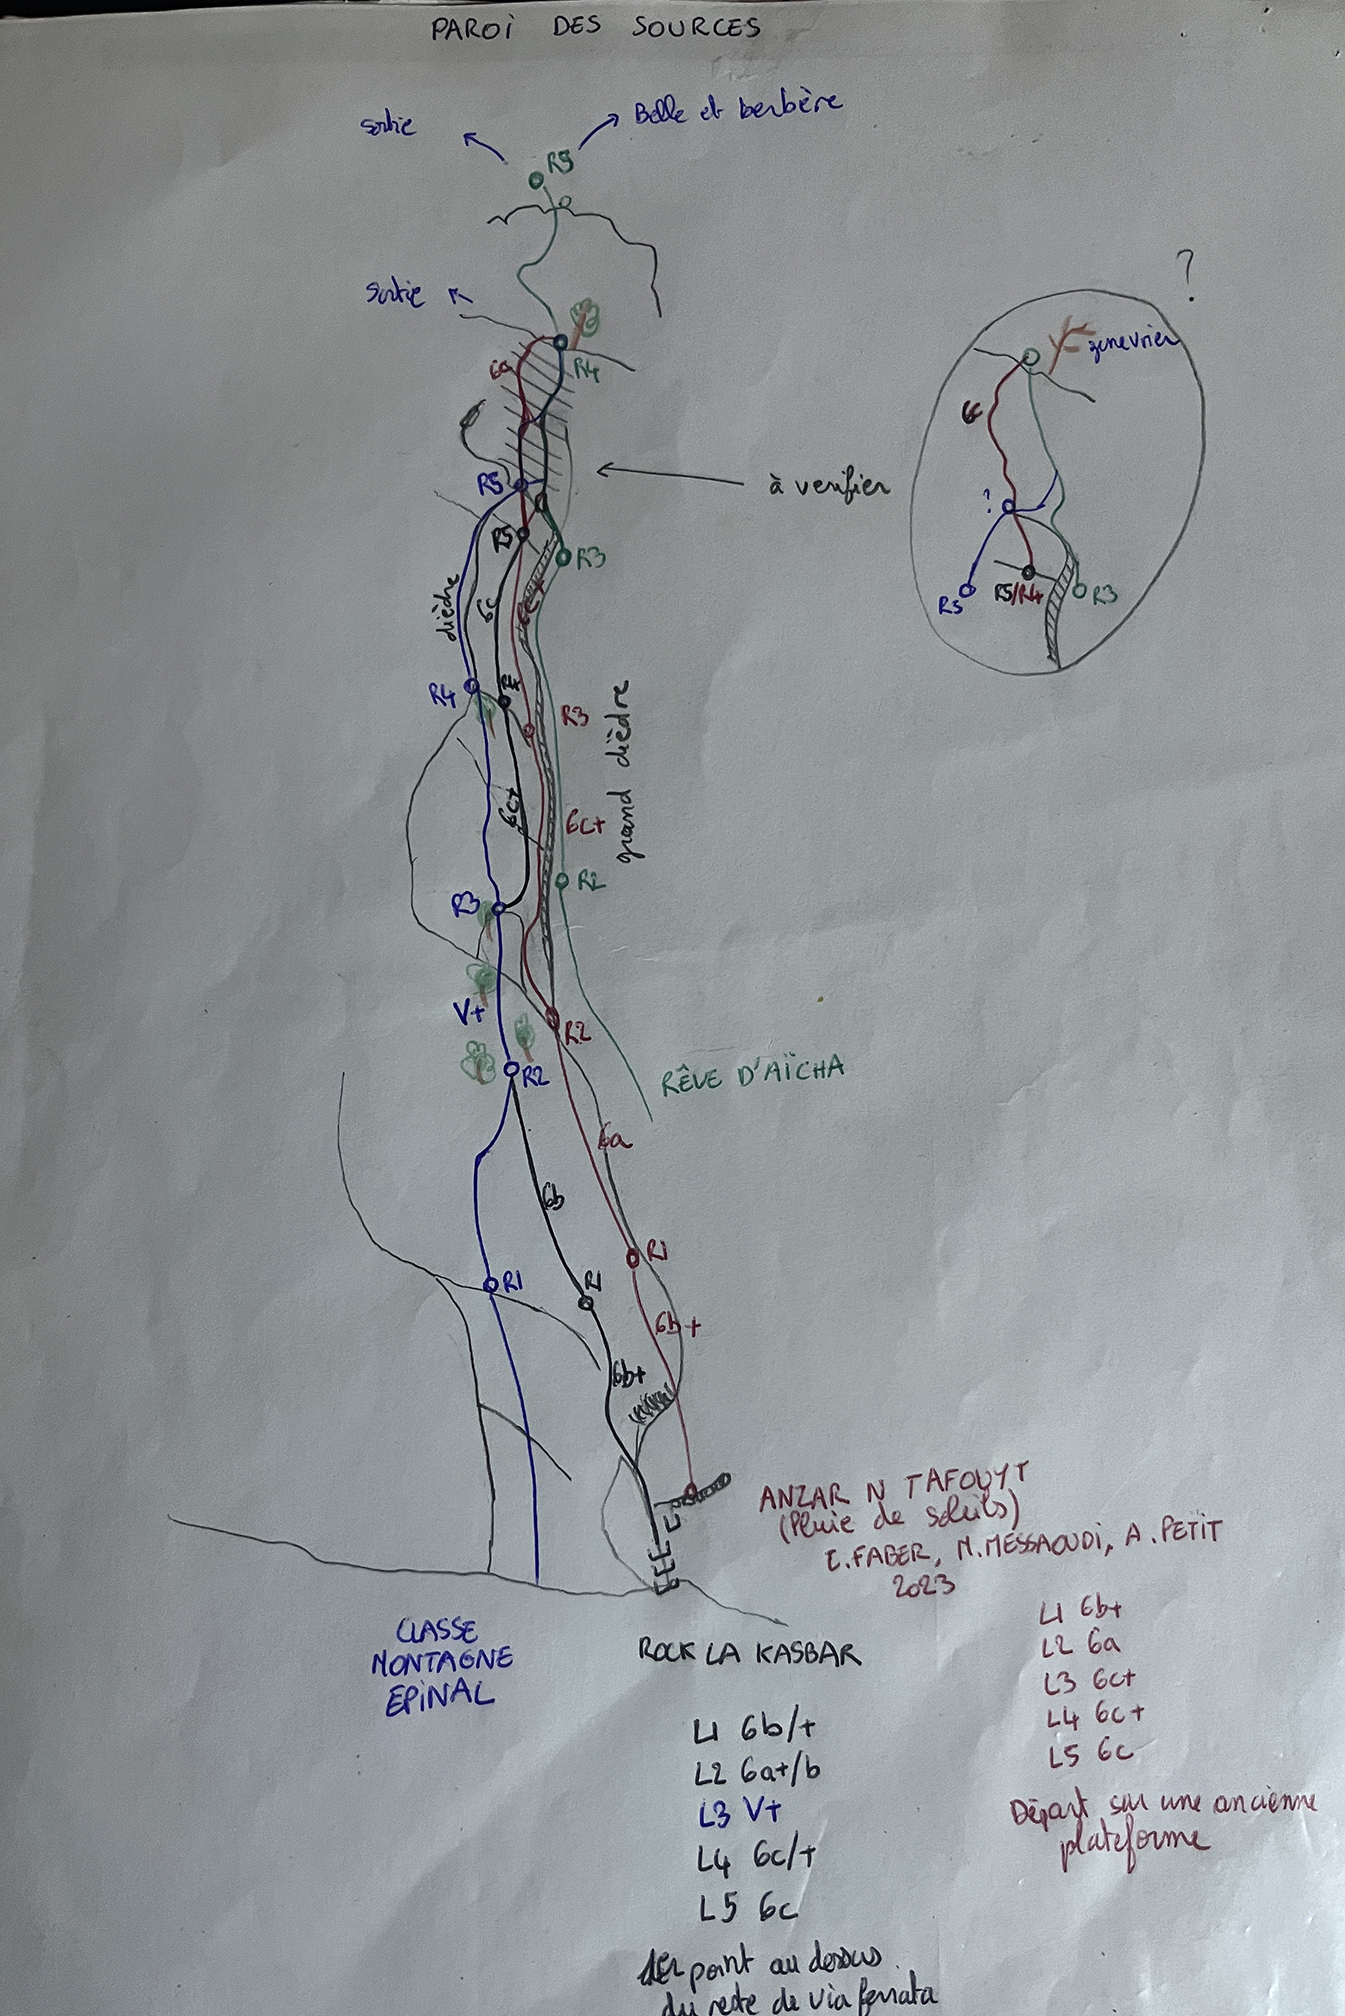 PAROI DES SOURCES
sortie
Belle et berbère
R5
sortie
R4
6a
?
genevrier
6c
à verifier
R5
R5
R3
?
R5
R5/R4
R3
dièdre
6c
6c+
R4
R3
grand dièdre
6c+
6c+
R3
R2
V+
R2
R2
RÊVE D'AÏCHA
6a
6b
R1
R1
R1
6b+
6b+
ANZAR N TAFOUYT
(Pluie de soleils)
E.FABER, M.MESSAOUDI, A.PETIT
2023
L1 6b+
L2 6a
L3 6c+
L4 6c+
L5 6c
Départ sur une ancienne
plateforme
CLASSE
MONTAGNE
EPINAL
ROCK LA KASBAR
L1 6b/+
L2 6a+/b
L3 V+
L4 6c/+
L5 6c
1er point au dessus
du reste de via ferrata